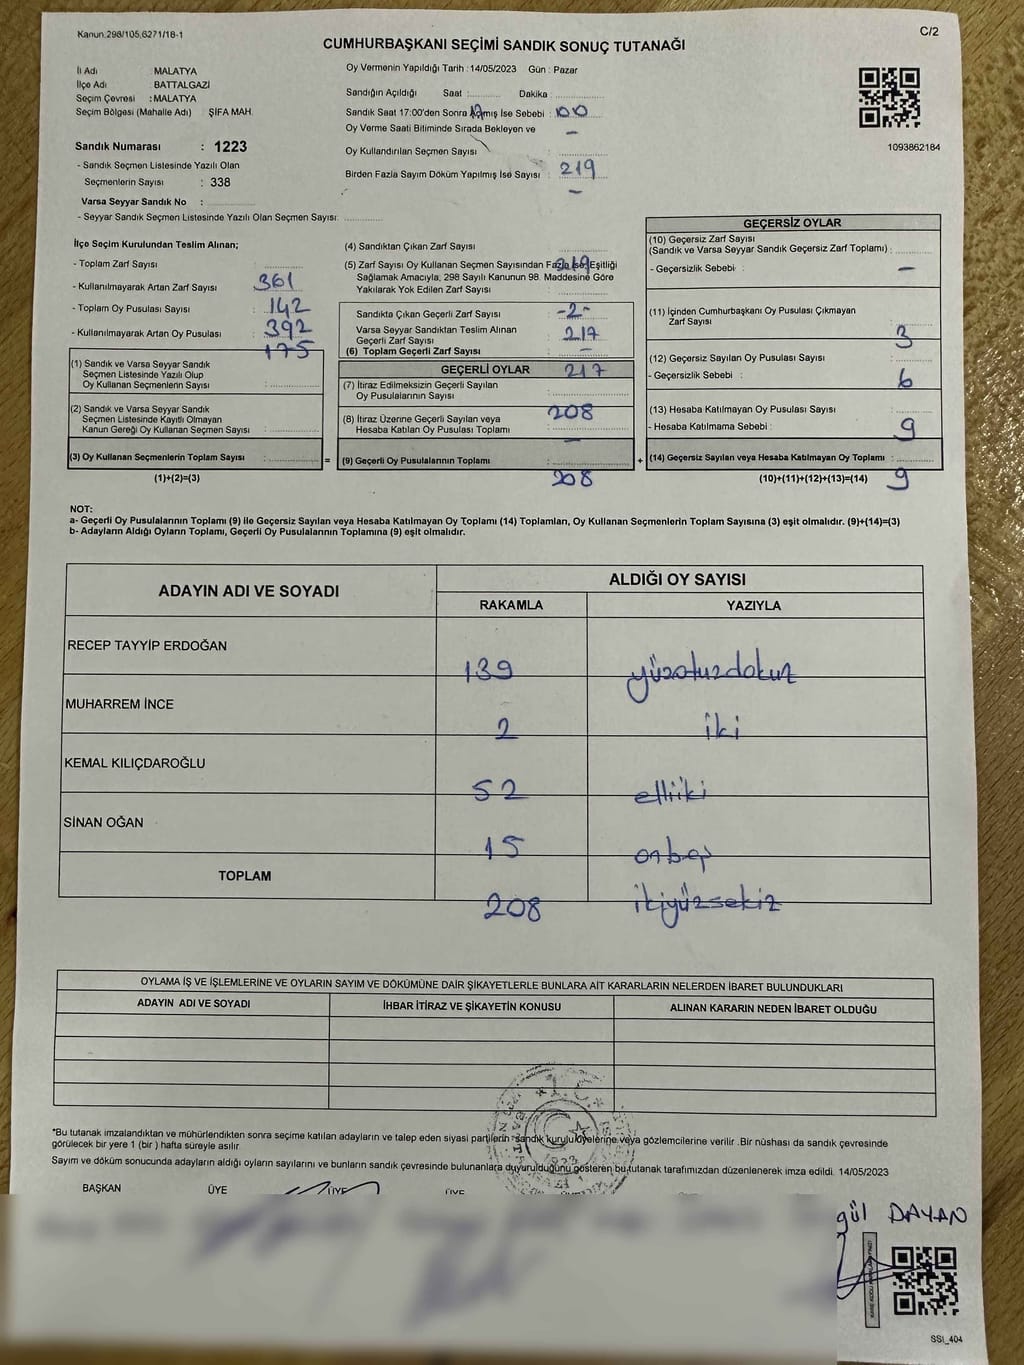 Kanun:298/105,6271/18-1
C/2
CUMHURBAŞKANI SEÇİMİ SANDIK SONUÇ TUTANAĞI
İl Adı : MALATYA
İlçe Adı : BATTALGAZİ
Seçim Çevresi : MALATYA
Seçim Bölgesi (Mahalle Adı) ŞİFA MAH.
Sandık Numarası : 1223
- Sandık Seçmen Listesinde Yazılı Olan
Seçmenlerin Sayısı : 338
Varsa Seyyar Sandık No :
- Seyyar Sandık Seçmen Listesinde Yazılı Olan Seçmen Sayısı:
Oy Vermenin Yapıldığı Tarih : 14/05/2023 Gün : Pazar
Sandığın Açıldığı Saat : Dakika :
17 00
Sandık Saat 17:00'den Sonra Açılmış İse Sebebi :
Oy Verme Saati Bitiminde Sırada Bekleyen ve
Oy Kullandırılan Seçmen Sayısı :
Birden Fazla Sayım Döküm Yapılmış İse Sayısı : 219
1093862184
İlçe Seçim Kurulundan Teslim Alınan;
- Toplam Zarf Sayısı :
361
- Kullanılmayarak Artan Zarf Sayısı :
142
- Toplam Oy Pusulası Sayısı :
392
- Kullanılmayarak Artan Oy Pusulası :
175
(1) Sandık ve Varsa Seyyar Sandık
Seçmen Listesinde Yazılı Olup
Oy Kullanan Seçmenlerin Sayısı :
(2) Sandık ve Varsa Seyyar Sandık
Seçmen Listesinde Kayıtlı Olmayan
Kanun Gereği Oy Kullanan Seçmen Sayısı :
(3) Oy Kullanan Seçmenlerin Toplam Sayısı :
(1)+(2)=(3)
(4) Sandıktan Çıkan Zarf Sayısı :
219
(5) Zarf Sayısı Oy Kullanan Seçmen Sayısından Fazla İse, Eşitliği
Sağlamak Amacıyla, 298 Sayılı Kanunun 98. Maddesine Göre
Yakılarak Yok Edilen Zarf Sayısı :
-2-
Sandıkta Çıkan Geçerli Zarf Sayısı :
217
Varsa Seyyar Sandıktan Teslim Alınan
Geçerli Zarf Sayısı :
-
(6) Toplam Geçerli Zarf Sayısı :
GEÇERLİ OYLAR
217
(7) İtiraz Edilmeksizin Geçerli Sayılan
Oy Pusulalarının Sayısı :
208
(8) İtiraz Üzerine Geçerli Sayılan veya
Hesaba Katılan Oy Pusulası Toplamı :
-
= (9) Geçerli Oy Pusulalarının Toplamı :
208
GEÇERSİZ OYLAR
(10) Geçersiz Zarf Sayısı
(Sandık ve Varsa Seyyar Sandık Geçersiz Zarf Toplamı) :
- Geçersizlik Sebebi : -
(11) İçinden Cumhurbaşkanı Oy Pusulası Çıkmayan
Zarf Sayısı :
3
(12) Geçersiz Sayılan Oy Pusulası Sayısı :
- Geçersizlik Sebebi : 6
(13) Hesaba Katılmayan Oy Pusulası Sayısı :
- Hesaba Katılmama Sebebi : 9
+ (14) Geçersiz Sayılan veya Hesaba Katılmayan Oy Toplamı :
(10)+(11)+(12)+(13)=(14) 9
NOT:
a- Geçerli Oy Pusulalarının Toplamı (9) ile Geçersiz Sayılan veya Hesaba Katılmayan Oy Toplamı (14) Toplamları, Oy Kullanan Seçmenlerin Toplam Sayısına (3) eşit olmalıdır. (9)+(14)=(3)
b- Adayların Aldığı Oyların Toplamı, Geçerli Oy Pusulalarının Toplamına (9) eşit olmalıdır.
ADAYIN ADI VE SOYADI
ALDIĞI OY SAYISI
RAKAMLA YAZIYLA
RECEP TAYYİP ERDOĞAN
139 yüzotuzdokuz
MUHARREM İNCE
2 iki
KEMAL KILIÇDAROĞLU
52 elliiki
SİNAN OĞAN
15 onbeş
TOPLAM
208 ikiyüzsekiz
OYLAMA İŞ VE İŞLEMLERİNE VE OYLARIN SAYIM VE DÖKÜMÜNE DAİR ŞİKAYETLERLE BUNLARA AİT KARARLARIN NELERDEN İBARET BULUNDUKLARI
ADAYIN ADI VE SOYADI İHBAR İTİRAZ VE ŞİKAYETİN KONUSU ALINAN KARARIN NEDEN İBARET OLDUĞU
*Bu tutanak imzalandıktan ve mühürlendikten sonra seçime katılan adayların ve talep eden siyasi partilerin sandık kurulu üyelerine veya gözlemcilerine verilir .Bir nüshası da sandık çevresinde
görülecek bir yere 1 (bir ) hafta süreyle asılır.
Sayım ve döküm sonucunda adayların aldığı oyların sayılarını ve bunların sandık çevresinde bulunanlara duyurulduğunu gösteren bu tutanak tarafımızdan düzenlenerek imza edildi. 14/05/2023
BAŞKAN ÜYE ÜYE ÜYE
gül DAYAN
SSI_404